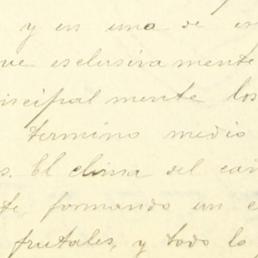 y en una de es
ue esclusivamente
incipalmente los
termino medio
s. El clima del cam
te formando un e
frutales, y todo lo